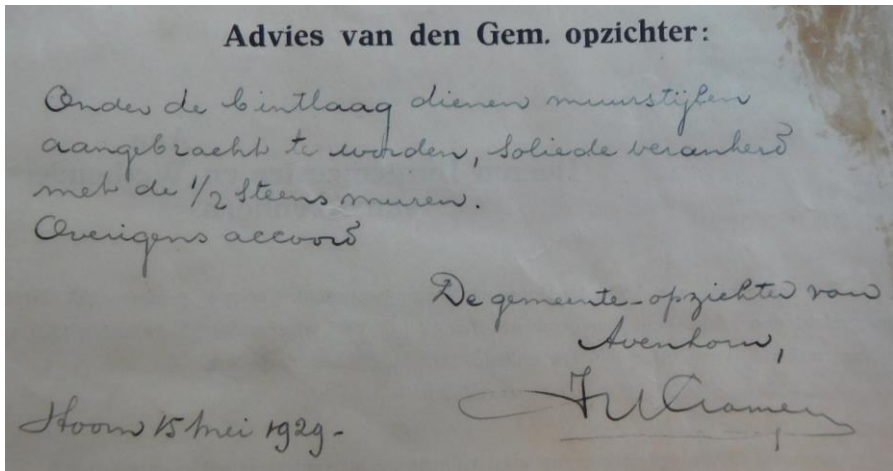 Advies van den Gem. opzichter:
Onder de bintlaag dienen muurstijlen
aangebracht te worden, soliede verankerd
met de 1/2 steens muren.
Overigens accoord
De gemeente-opzichter van
Avenhorn,
Cramer
Hoorn 15 Mei 1929-